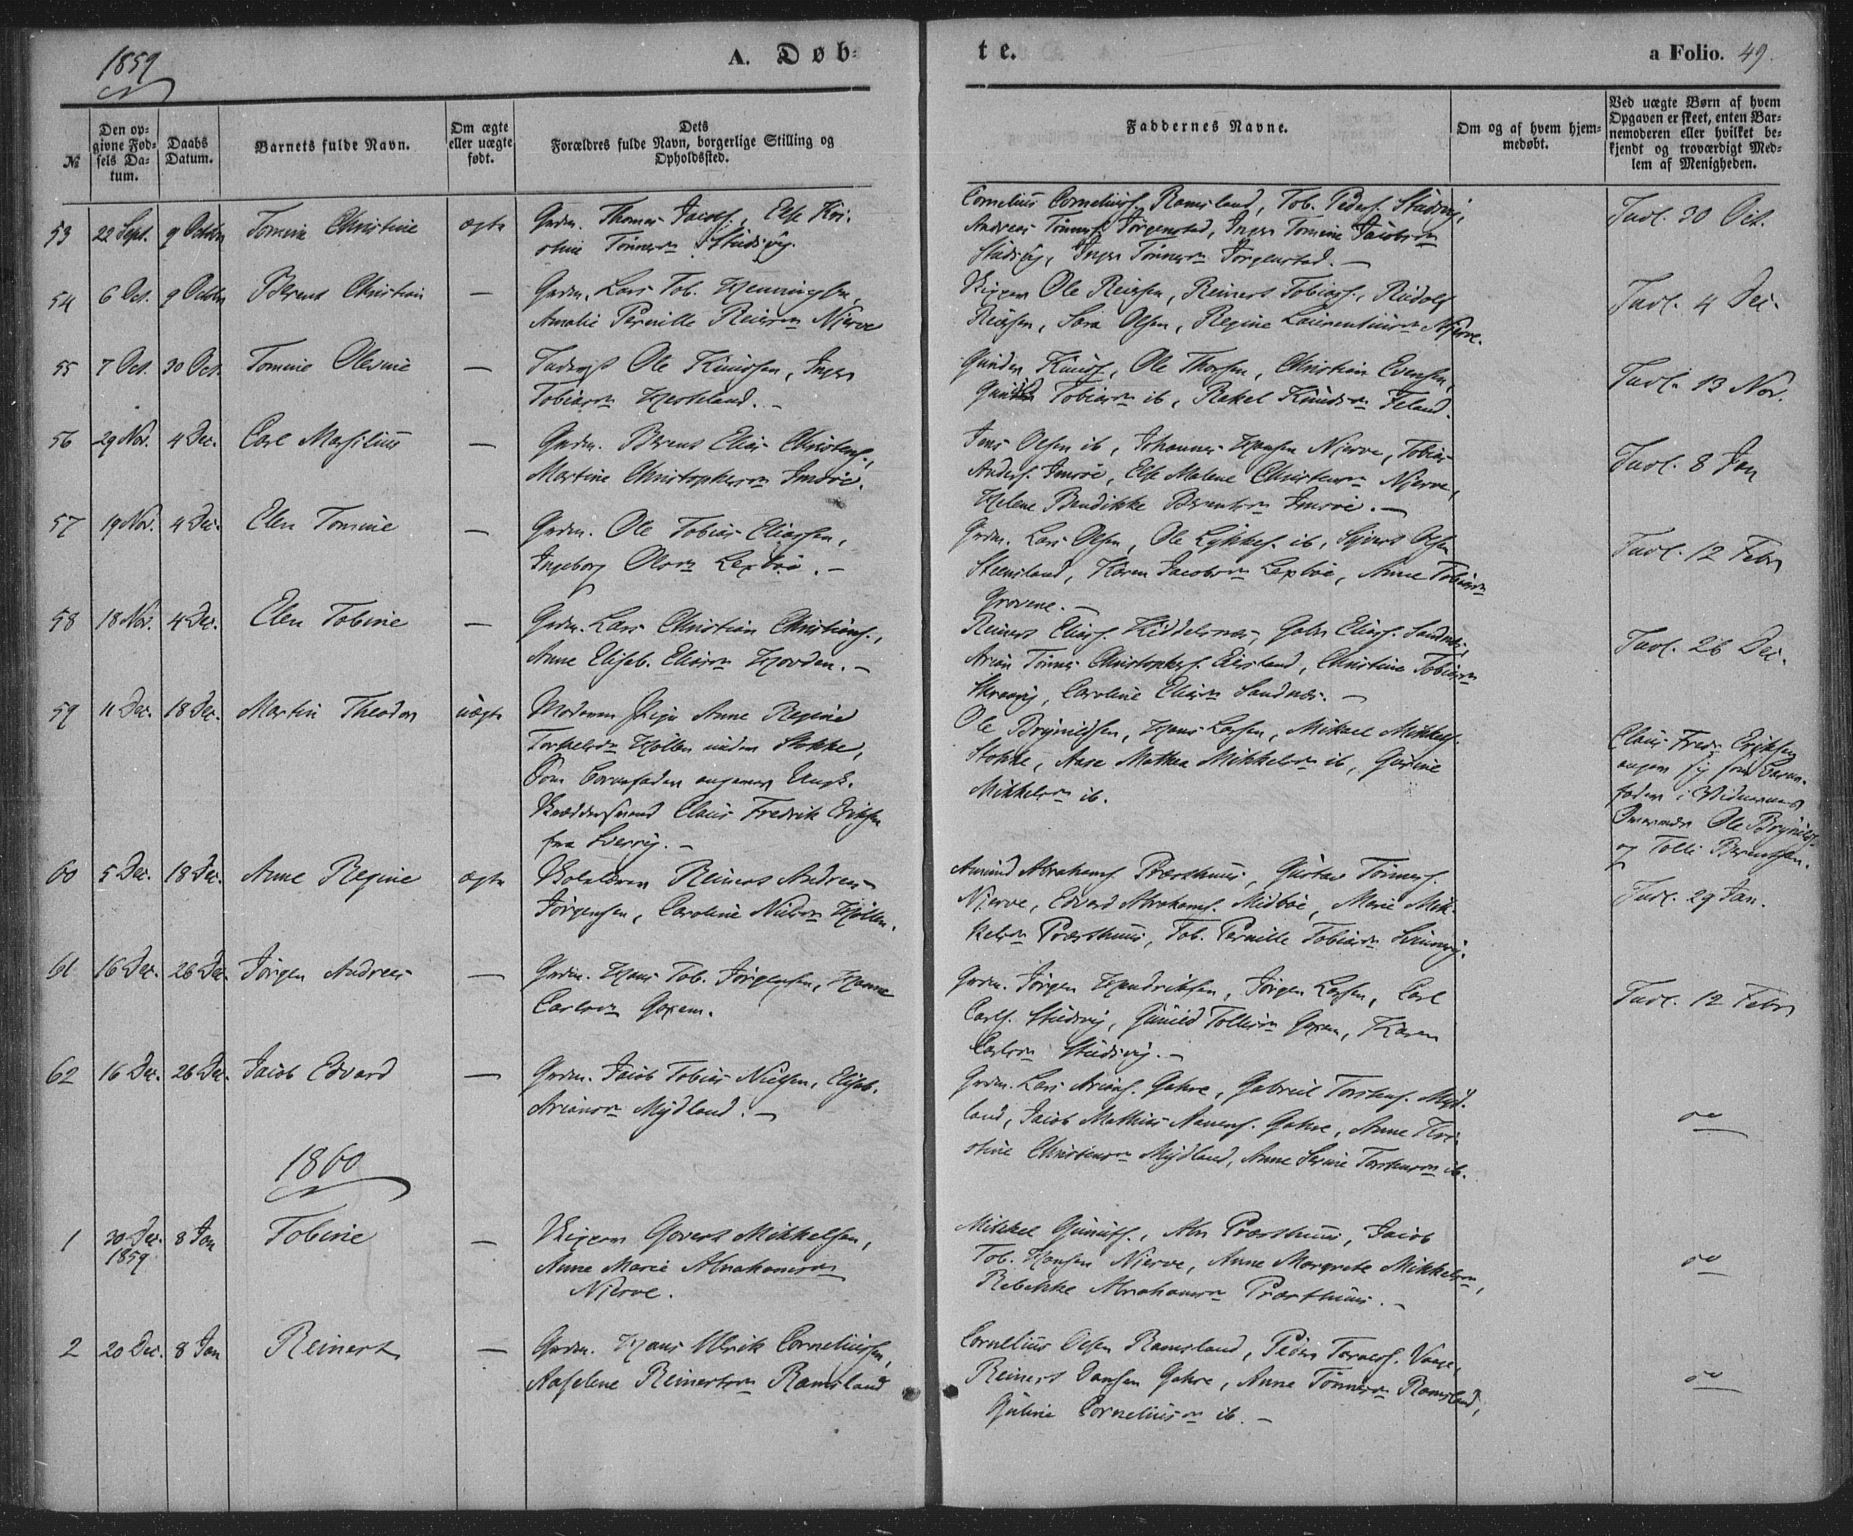 1859
A. Døb-
te.
a Folio. 49.
№
Den op-
givne Fød-
sels Da-
tum.
Daabs
Datum.
Barnets fulde Navn.
Om ægte
eller uægte
født.
Dets
Forældres fulde Navn, borgerlige Stilling og
Opholdssted.
Faddernes Navne.
Om og af hvem hjem-
medøbt.
Ved uægte Børn af hvem
Opgaven er skeet, enten Bar-
nemoderen eller hvilket be-
kjendt og troværdigt Med-
lem af Menigheden.
53 22 Sept. 9 Octbr Tomine Christine ægte Grdm. Thomas Jacobs., Else Kri-
stine Tønnesdn Studsvig.
Cornelius Corneliuss. Ramsland, Tob. Peders. Studsvig,
Andreas Tønness. Jørgenstad, Inger Tomine Jacobsdn
Studsvig, Inger Tønnesdn Jørgenstad. —
Indl. 30 Oct.
54 6 Oct. 9 Octbr Bernt Christian — Grdm. Lars Tob. Henningsen,
Amalie Pernille Reiersdn Njerve
Ole Reiersen, Reinert Tobiass., Rudolf
Reiersen, Sara Olsen, Regine Laurentiusdn Njerve.
Indl. 4 Dec.
55 7 Oct. 30 Oct. Tomine Olevine — Ole Knudsen, Inger
Tobiasdn Hesteland. —
Gunder Knuds., Ole Thorsen, Christian Evensen,
Tobiasdn ib, Rakel Knudsdn Feland.
Indl. 13 Nov.
56 29 Nov. 4 Dec. Carl Marsilius — Grdm. Bernt Elias Christens.,
Martine Christophersdn Imsøe.
Jens Olsen ib, Johannes Hansen Njerve, Tobias
Anders. Imsøe, Else Malene Christensdn Njerve,
Helene Bendikke Berentsdn Imsøe. —
Indl. 8 Jan
57 19 Nov. 4 Dec. Elen Tomine — Grdm. Ole Tobias Eliassen,
Ingeborg Olsdn Lexbøe. —
Grdm. Lars Olsen, Ole Lykkes. ib, Olsen
Steensland, Karen Jacobsdn Lexbøe, Anne Tobiasdn
Grovene. —
Indl. 12 Febr
58 18 Nov. 4 Dec. Elen Tobine — Grdm. Lars Christian Christians.,
Anne Elisab. Eliasdn Hovden. —
Reinert Eliass. Kiddelsnes, Gabr. Eliass. Sandnes,
Arian Tønnes Christophers. Eiesland, Christine Tobiasdn
Caroline Eliasdn Sandnes. —
Indl. 26 Dec.
59 11 Dec. 18 Dec. Martin Theodor uægte Moderen Pige Anne Regine
Torkelsdn Høllen under Stokke,
Som Barnefader angives Ungk.
Skræddersvend Claus Fredrik Eriksen
fra Sverrig. —
Ole Brynildsen, Hans Larsen, Mikael Mikkels.
Stokke, Aase Mathea Mikkelsdn ib, Gustine
Mikkelsdn ib.
Claus Fredr. Eriksen
angav sig som Barne-
fader i Vidnernes
Ole Brynilds.
og Tolli Berentsen.
60 5 Dec. 18 Dec. Anne Regine ægte Reinert Andreas
Jørgensen, Caroline Nielsdn Høllen.
Amund Abrahams. Præsthuus, Gustav Tønness.
Njerve, Edvard Abrahams. Midbøe, Marie Mik-
kelsdn Præsthuus, Tob. Pernille Tobiasdn
Indl. 29 Jan.
61 16 Dec. 26 Dec. Jørgen Andreas — Grdm. Hans Tob. Jørgensen, Hanne
Carlsdn Goxem.
Grdm. Jørgen Hendriksen, Jørgen Larsen, Carl
Carls. Studsvig, Gunild Tollisdn Goxem, Karen
Carlsdn Studsvig. —
Indl. 12 Febr
62 16 Dec. 26 Dec. Jacob Edvard — Grdm. Jacob Tobias Nielsen, Elisab.
Ariansdn Mydland. —
Grdm. Lars Arians. Gahre, Gabriel Torstens. Myd-
land, Jacob Mathias Aanens. Gahre, Anne Kri-
stine Christensdn Mydland, Anne Serine Torstensdn ib.
do
1860
1 30 Dec.
1859 8 Jan Tobine — Govert Mikkelsen,
Anne Marie Abrahamsdn
Njerve.
Mikkel Gunufs., Abr. Præsthuus, Jacob
Tob. Hansen Njerve, Anne Margrete Mikkelsdn,
Rebekke Abrahamsdn Præsthuus. —
do
2 20 Dec. 8 Jan Reinert — Grdm. Hans Ulrik Corneliussen,
Aaselene Reinertsdn Ramsland
Cornelius Olsen Ramsland, Peder Tarjers. Vaage,
Reinert Gahre, Anne Tønnesdn Ramsland,
Juline Corneliusdn ib. —
do